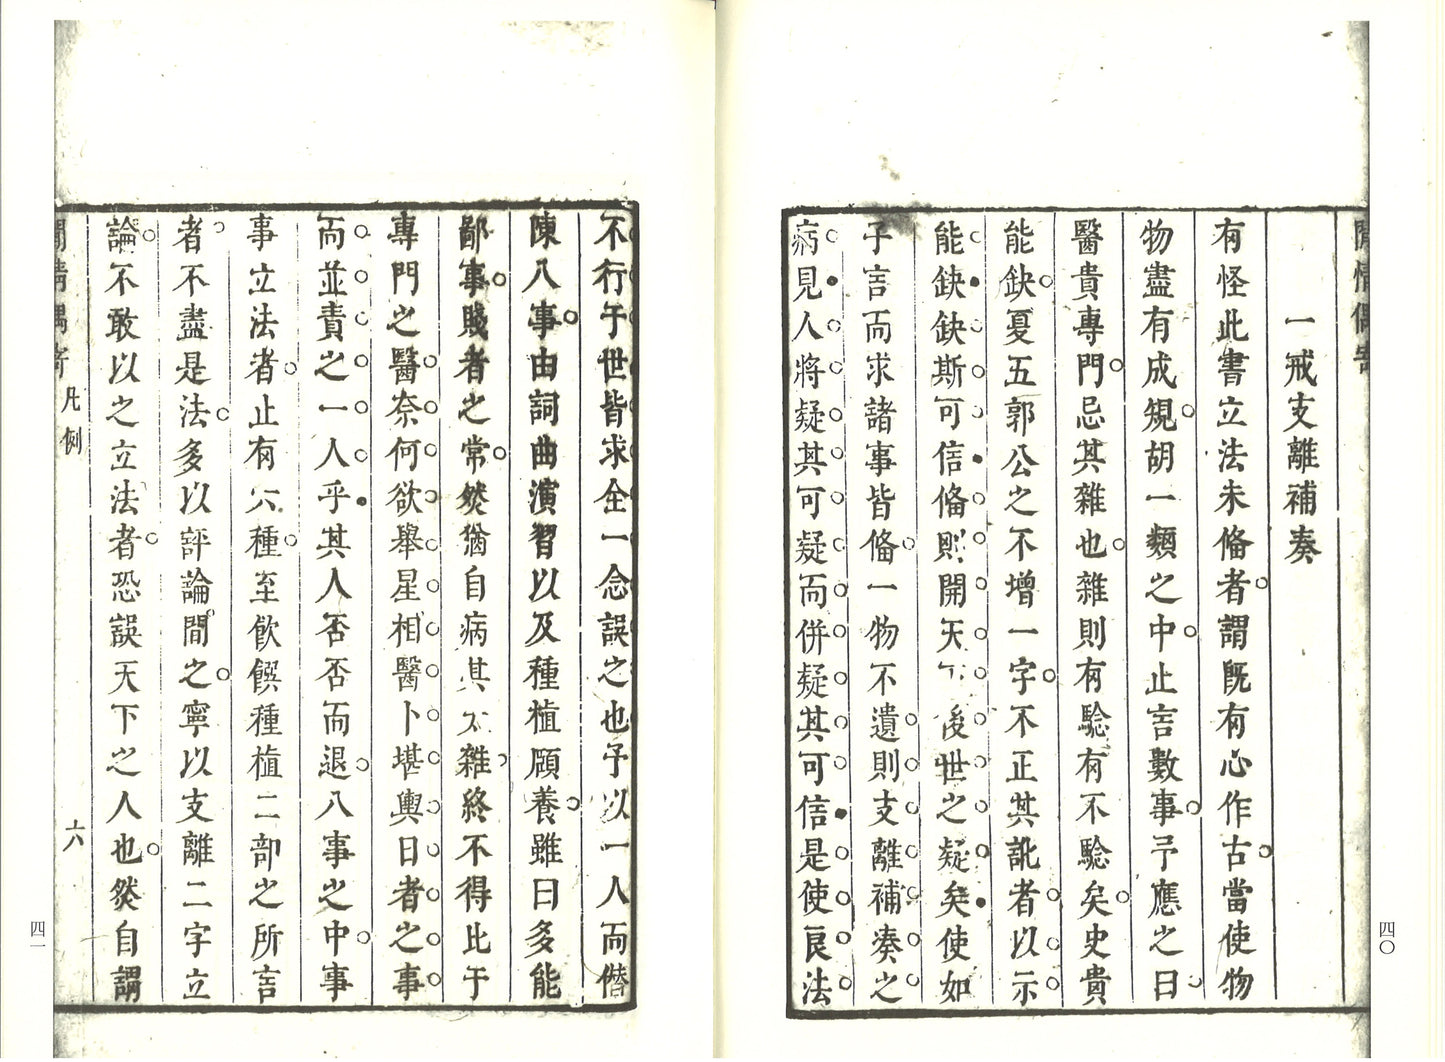 閒情偶寄
一戒支離補湊
有怪此書立法未備者謂旣有心作古當使物
物盡有成䂓胡一類之中止言數事予應之曰
醫貴專門忌其雜也雜則有驗有不驗矣史貴
能缺夏五郭公之不增一字不正其訛者以示
能缺缺斯可信備則開天後世之疑矣使如
子言而求諸事皆備一物不遺則支離補湊之
病見人將疑其可疑而併疑其可信是使良法
四〇
不行于世皆求全一念誤之也予以一人而僭
陳八事由詞曲演習以及種植頤養雖曰多能
鄙事賤者之常然猶自病其太雜終不得比于
專門之醫奈何欲舉星相醫卜堪輿日者之事
而並責之一人乎其人否否而退八事之中事
事立法者止有六種至飮饌種植二部之所言
者不盡是法多以評論間之寧以支離二字立
論不敢以之立法者恐誤天下之人也然自謂
閒情偶寄 凡例 六
四一